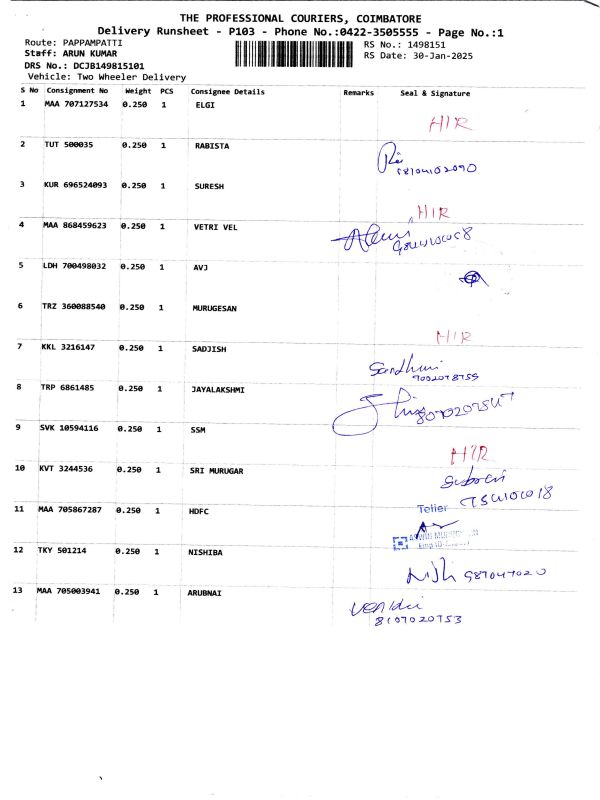 THE PROFESSIONAL COURIERS, COIMBATORE
Delivery Runsheet - P103 - Phone No.:0422-3505555 - Page No.:1
Route: PAPPAMPATTI
RS No.: 1498151
Staff: ARUN KUMAR
RS Date: 30-Jan-2025
DRS No.: DCJB149815101
Vehicle: Two Wheeler Delivery
S No Consignment No Weight PCS Consignee Details Remarks Seal & Signature
1 MAA 707127534 0.250 1 ELGI
HIR
2 TUT 500035 0.250 1 RABISTA
3 KUR 696524093 0.250 1 SURESH
HIR
4 MAA 868459623 0.250 1 VETRI VEL
5 LDH 700498032 0.250 1 AVJ
6 TRZ 360088540 0.250 1 MURUGESAN
HIR
7 KKL 3216147 0.250 1 SADJISH
8 TRP 6861485 0.250 1 JAYALAKSHMI
9 SVK 10594116 0.250 1 SSM
HIR
10 KVT 3244536 0.250 1 SRI MURUGAR
11 MAA 705867287 0.250 1 HDFC
Teller
12 TKY 501214 0.250 1 NISHIBA
13 MAA 705003941 0.250 1 ARUBNAI
8107020753